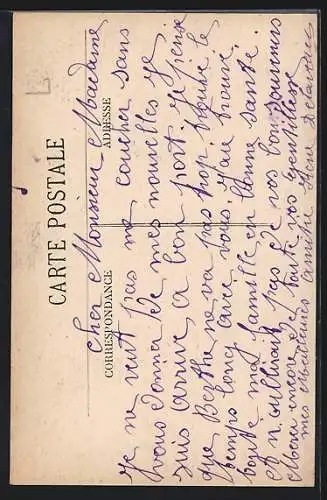 CARTE POSTALE
CORRESPONDANCE
ADRESSE
cher Monsieur Madame
Je ne veut pas me coucher sans
vous donner de mes nouvelles je
suis arrivé a bon port. Je pense
que Berthe ne va pas trop trouvé le
temps long avec vous. J'au trouvé
toute ma famille en bonne santé.
et n'oulliait pas de vos bon souvenirs
Merci encore de toute vos gentillesse
mes meilleures amitié